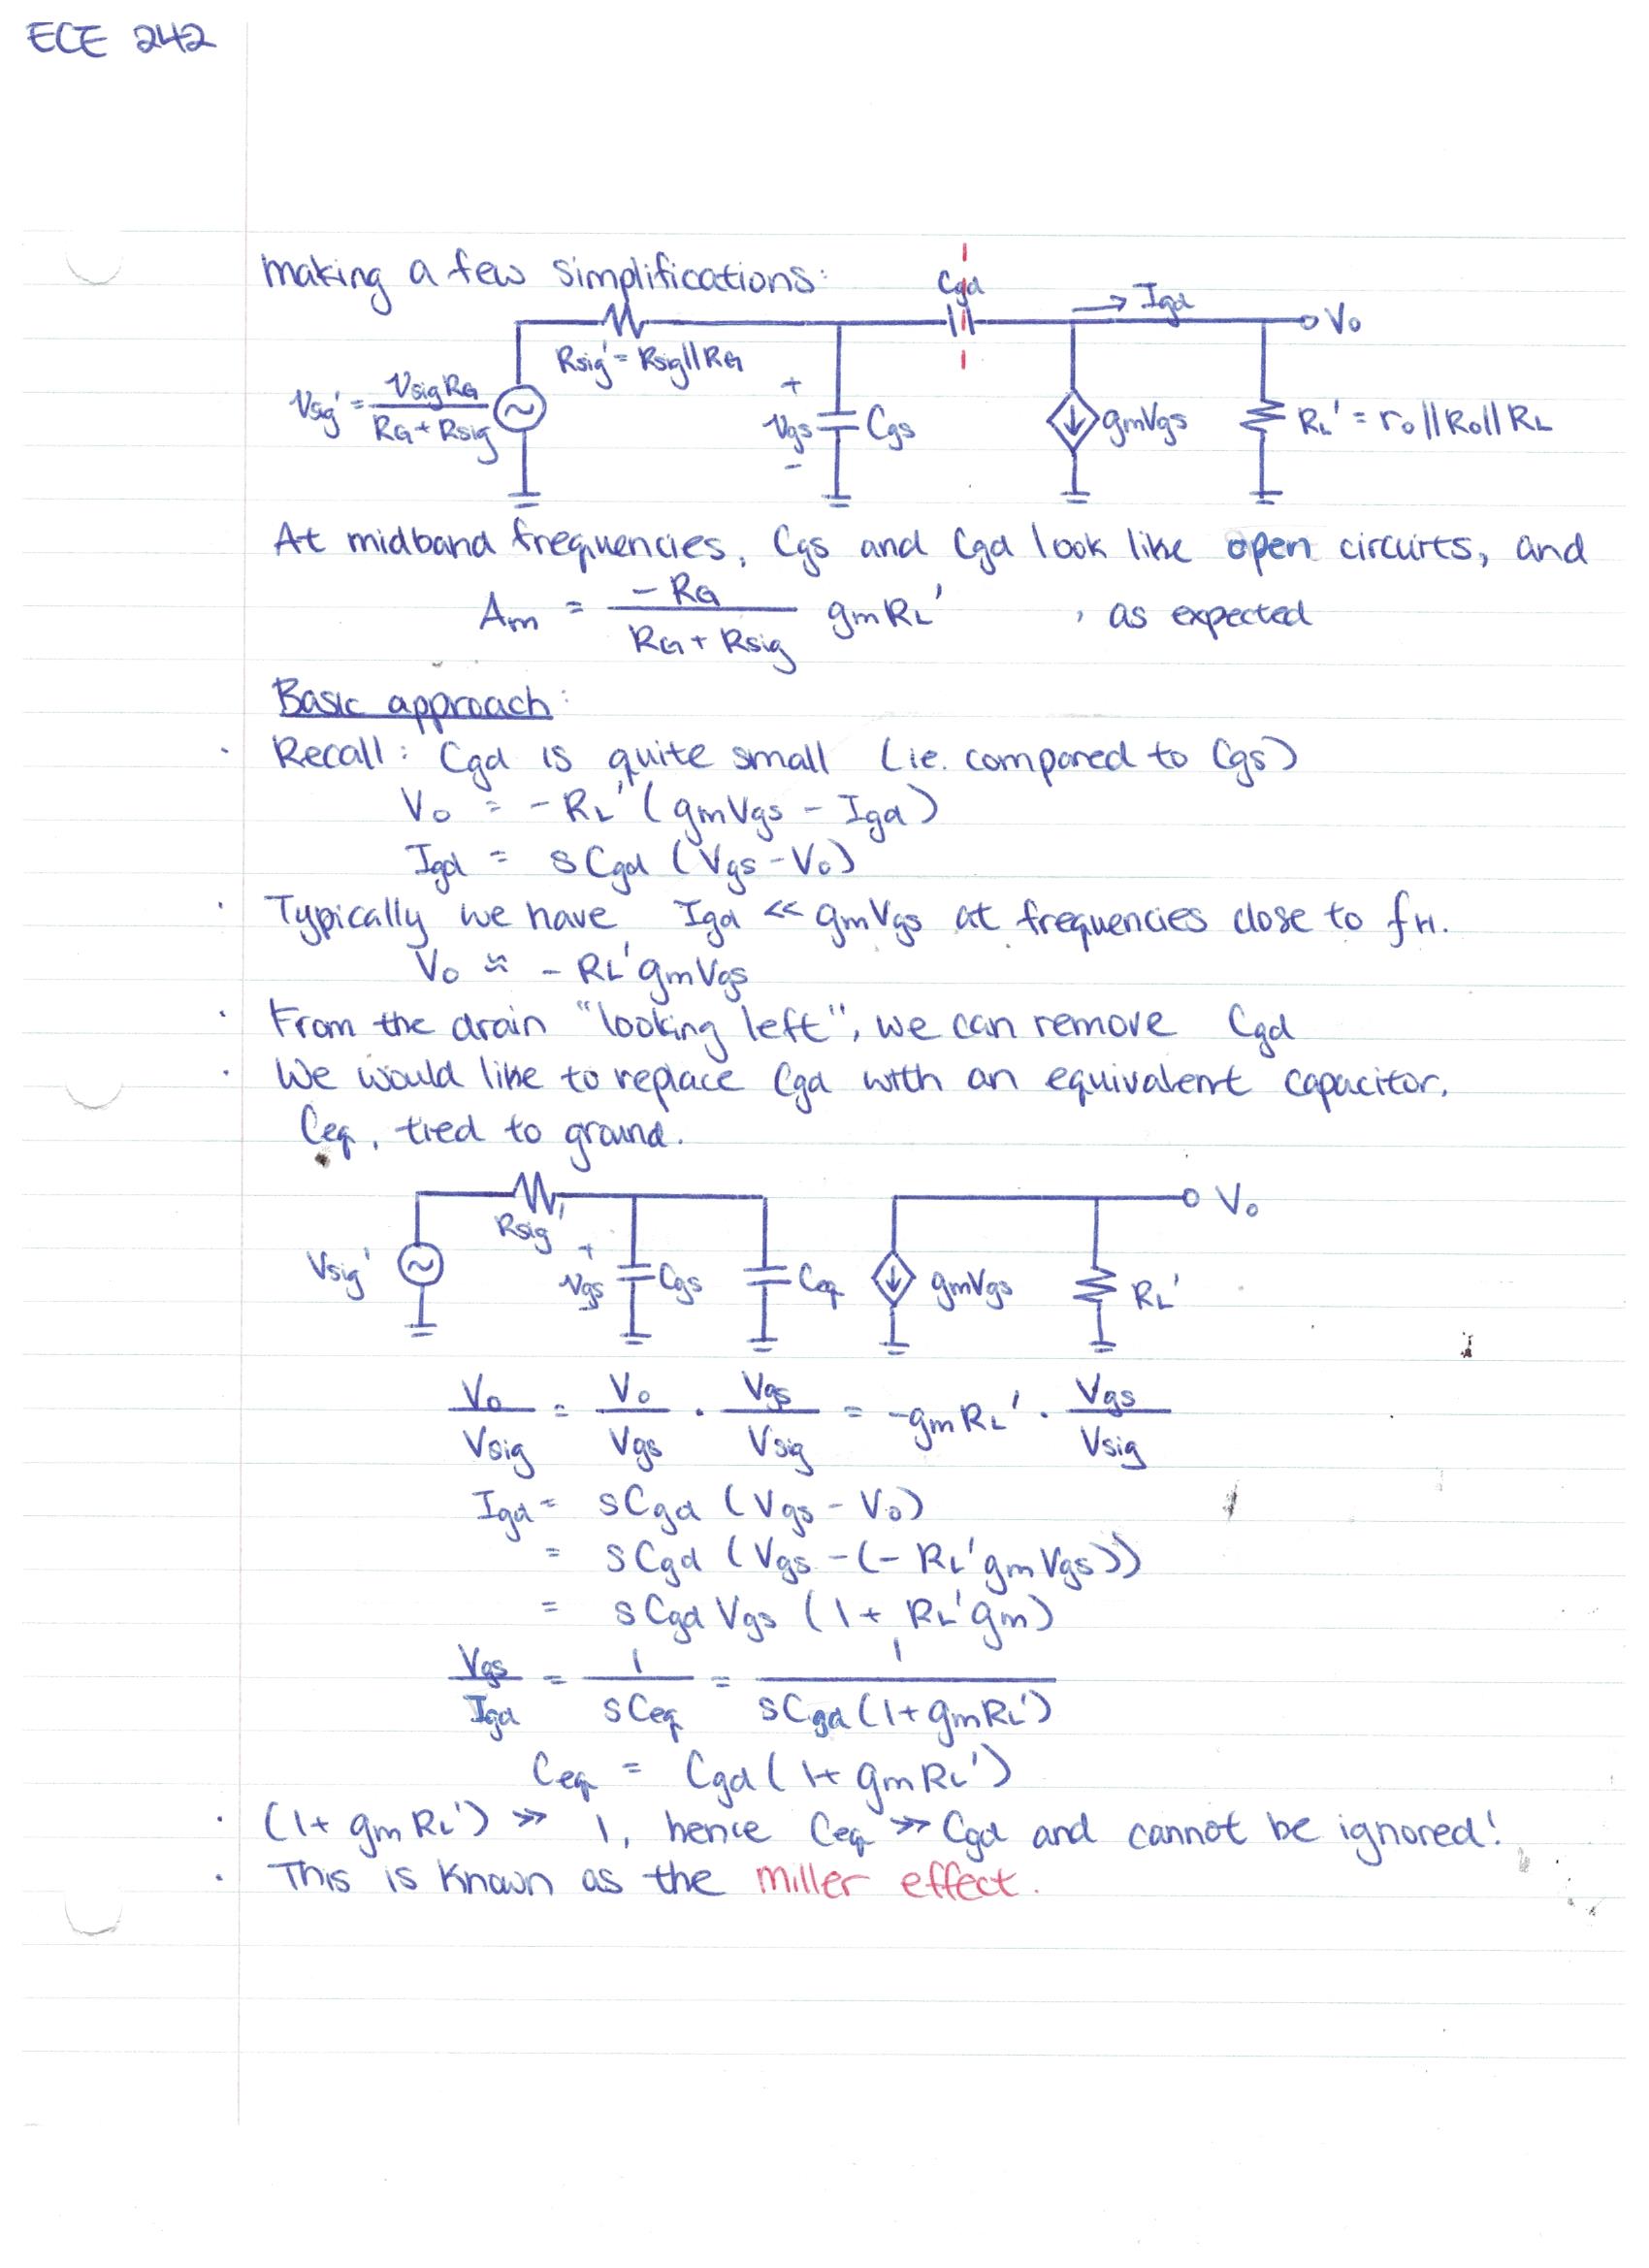 ECE 242
making a few simplifications:
Cgd
→ Igd
Vo
Rsig' = Rsig||RG
Vsig' = VsigRG / RG + Rsig
+
Vgs
-
Cgs
gmVgs
RL' = ro||RD||RL
At midband frequencies, Cgs and Cgd look like open circuits, and
Am = -RG / RG + Rsig gmRL' , as expected
Basic approach:
· Recall: Cgd is quite small (ie. compared to Cgs)
Vo = -RL' (gmVgs - Igd)
Igd = sCgd (Vgs - Vo)
· Typically we have Igd << gmVgs at frequencies close to fH.
Vo ≈ - RL'gmVgs
· From the drain "looking left", we can remove Cgd
· We would like to replace Cgd with an equivalent capacitor,
Ceq, tied to ground.
Vo
Rsig'
Vsig'
+
Vgs
-
Cgs
Ceq
gmVgs
RL'
Vo / Vsig = Vo / Vgs · Vgs / Vsig = -gmRL' · Vgs / Vsig
Igd = sCgd (Vgs - Vo)
= sCgd (Vgs - (- RL'gmVgs))
= sCgd Vgs (1 + RL'gm)
Vgs / Igd = 1 / sCeq = 1 / sCgd (1 + gmRL')
Ceq = Cgd (1 + gmRL')
· (1 + gmRL') >> 1, hence Ceq >> Cgd and cannot be ignored!
· This is known as the miller effect.